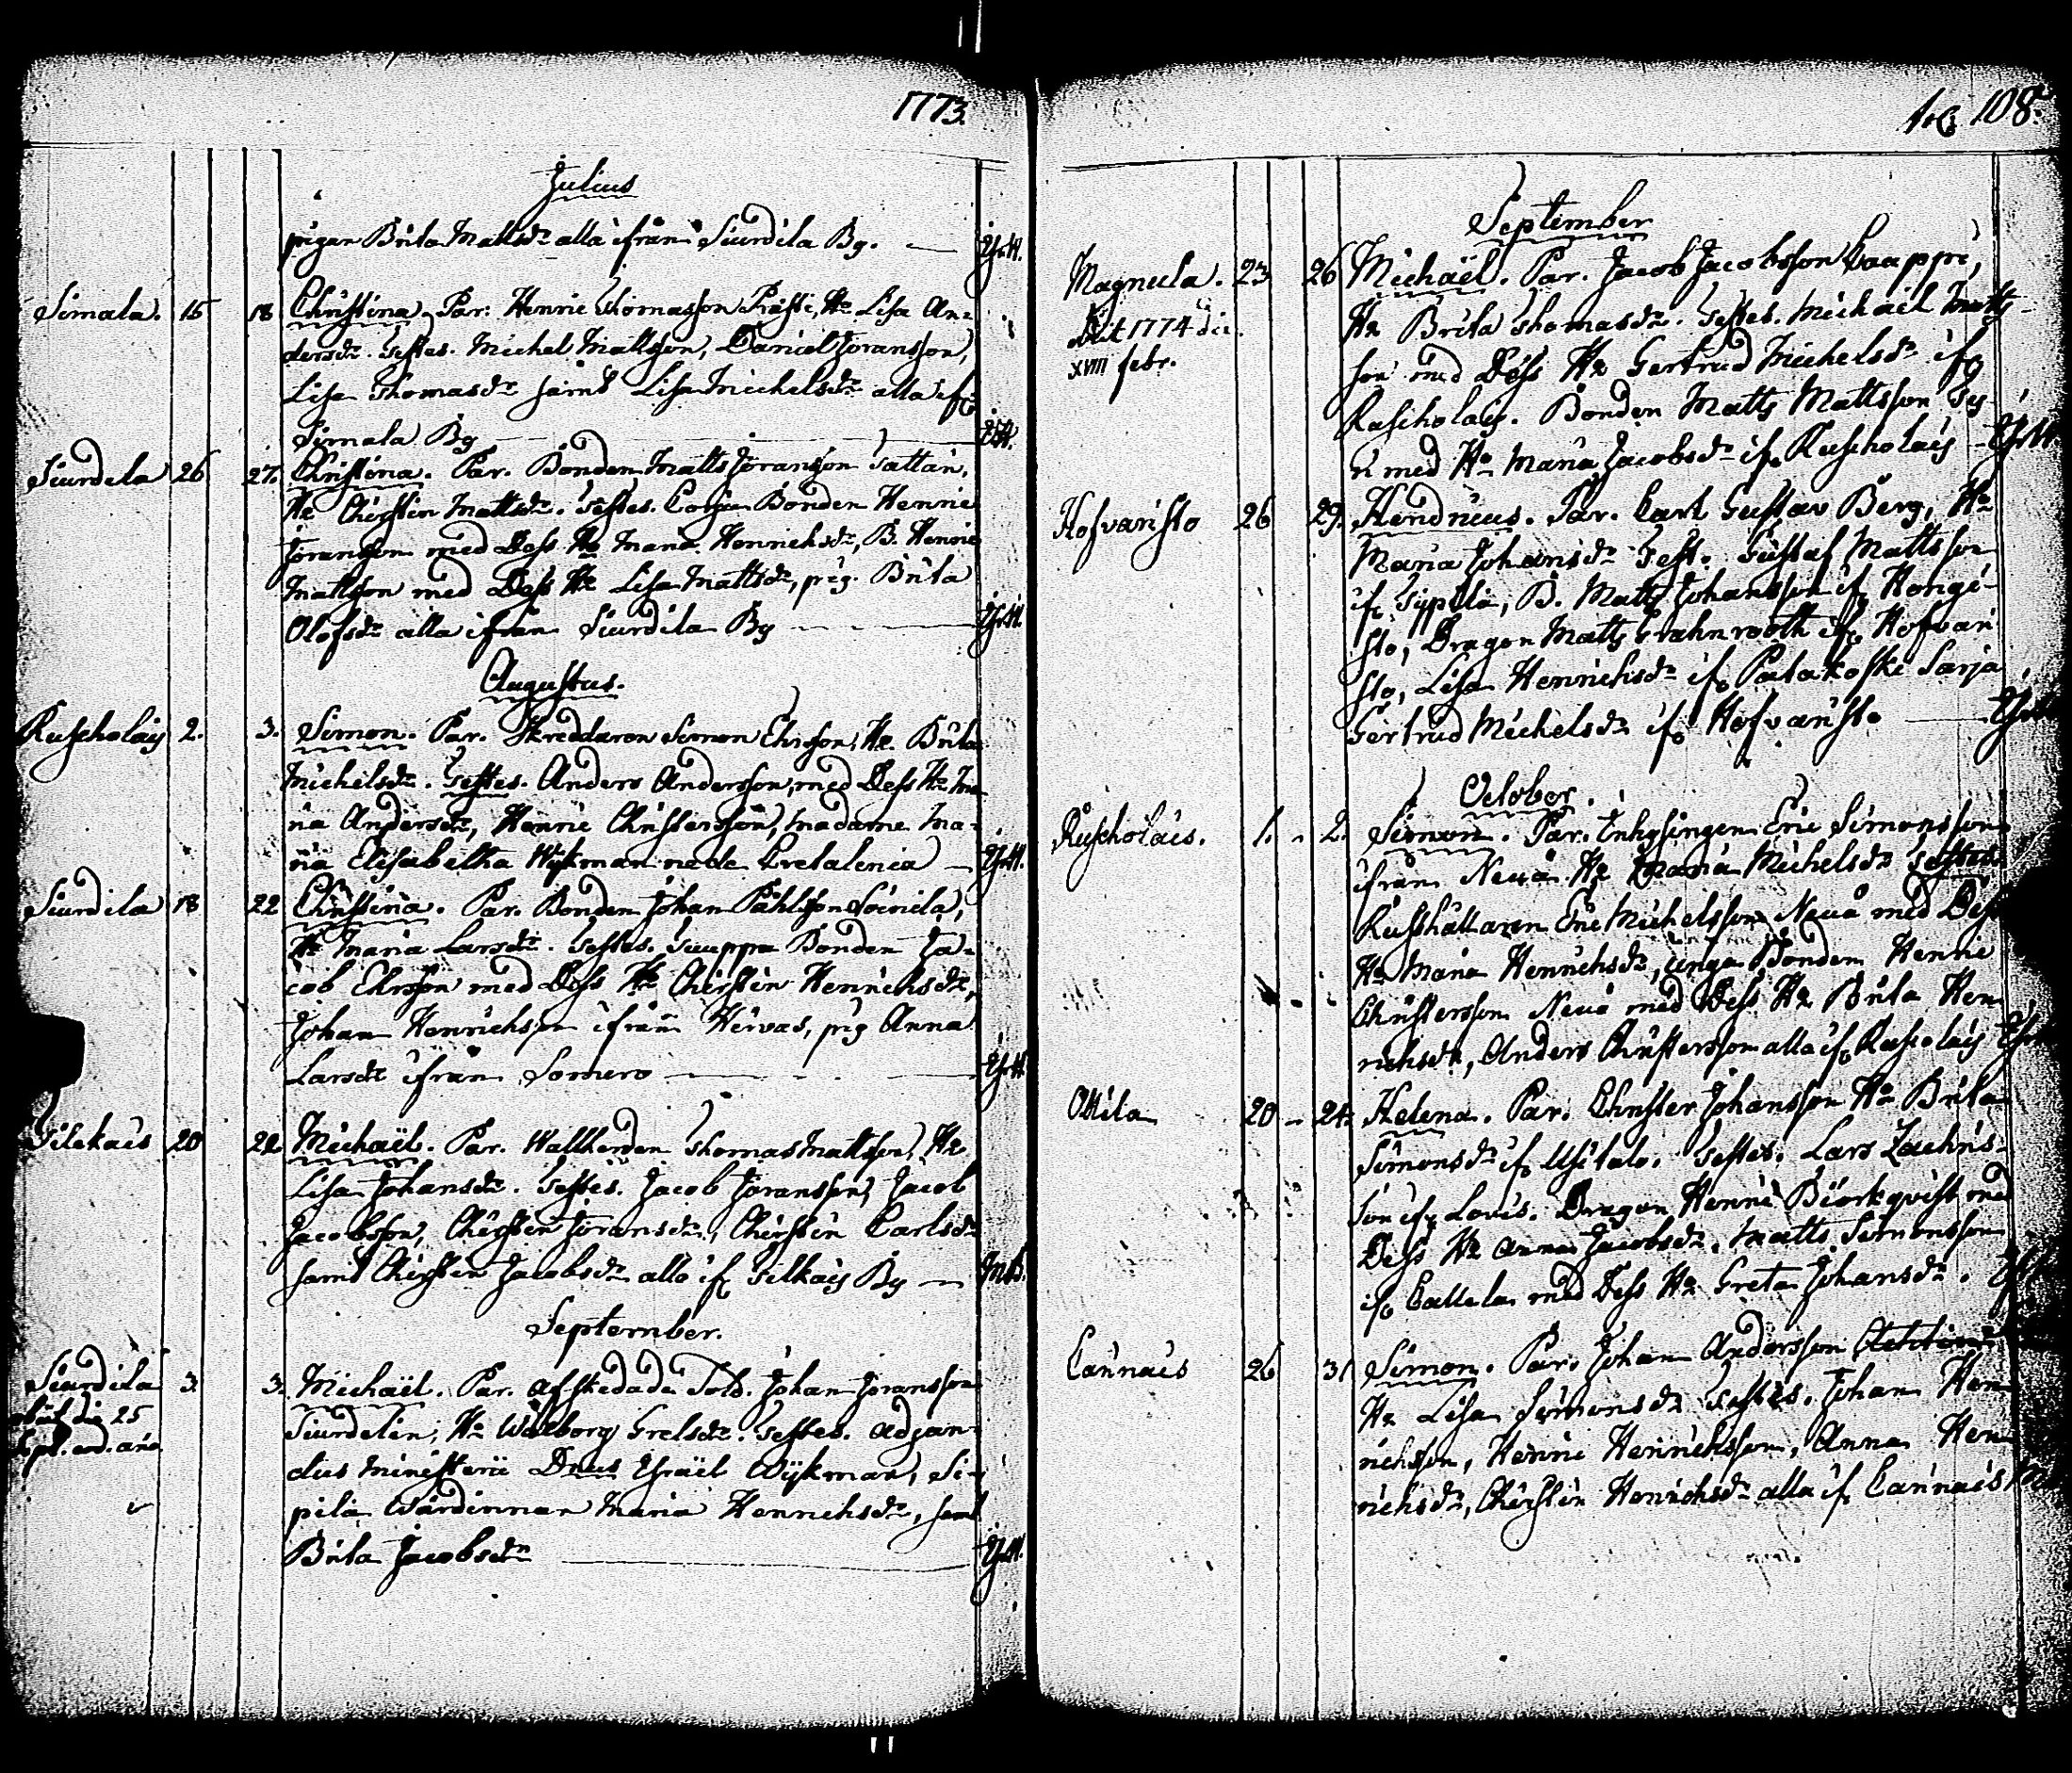 1773.
Julius
pigan Brita Mattsdr alla ifrån Siurdila By. Isr.W.
Simala. 15 18 Christina. Par. Henric Thomasson Prästi, Hu Lisa An-
dersdr. Testes. Michel Mattsson, Daniel Jöransson,
Lisa Thomasdr samt Lisa Michelsdr alla ifr.
Simala By
Siurdila 26 27. Christina. Par. Bonden Matts Jöransson Sattan,
Hu Chirstin Mattsdr. Testes. Bonden Henric
Jöransson med Dess Hu Maria Henrichsdr, B. Henric
Mattsson med Dess Hu Lisa Mattsdr, pig. Brita
Olofsdr alla ifrån Siurdila By Isr.W.
Augustus.
Ruskolais 2. 3. Simon. Par. Skreddaren Simon Ehrsson, Hu. Brita
Michelsdr. Testes. Anders Andersson, med Dess Hu Ma-
ria Andersdr, Henric Christersson, Madame Ma-
ria Elisabetha Wijkman nede Cretalenia Isr.W.
Siurdila 18 22 Christina. Par. Bonden Johan Påhlsson Soinila,
Hu Maria Larsdr. Testes. Bonden Ja-
cob Ehrsson med Dess Hu Chirstin Henrichsdr,
Johan Henrichsson ifrån Hirvas, pig Anna
Larsdr ifrån Somero Isr.W.
Tilckais 20 22 Michaël. Par. Wallherden Thomas Mattsson, Hu
Lisa Johansdr. Testes. Jacob Jöransson, Jacob
Jacobsson, Chirstin Jöransdr, Chirstin Carlsdr
samt Chirstin Jacobsdr alla ifr Tilkais By
September.
Siurdila 3. 3. Michaël. Par. afskedade Sold. Johan Jöransson
obiit die 25
Sept. eod. ano
Siurdelin, Hu Walborg Grelsdr. Testes. Adjun-
ctus Ministerii Dnus Israël Wijkman, Si-
pila Wärdinnan Maria Henrichsdr, samt
Brita Jacobsdr Isr.W.
108.
September
Magnula. 23 26 Michaël. Par. Jacob Jacobsson Caappri,
obiit 1774 die
xviii febr.
Hu Brita Thomasdr. Testes. Michaël Matts-
son med Dess Hu Gertrud Michelsdr ifr
Ruskolais. Bonden Matts Mattsson
med Hu Maria Jacobsdr ifr Ruskolais Isr.W.
Hofvaristo 26 29. Hendricus. Par. Carl Gustav Berg, Hu
Maria Johansdr Test. Gustaf Mattsson
ifr Syptlä, B. Matts Johansson ifr Hongi-
sto, Dragon Matts Grahnrooth ifr Hofvari
sto, Lisa Henrichsdr ifr Patakoski Sarja
Gertrud Michelsdr ifr Hofvaristo
October.
Ruskolais. 1. 2. Simon. Par. Inhysingen Eric Simonsson
ifrån Neuä Hu Maria Michelsdr Testes.
Rusthållaren Eric Michelsson Neuä med Dess
Hu Maria Henrichsdr, unga Bonden Henric
Christersson Neuä med Dess Hu Brita Hen
richsdr, Anders Christersson alla ifr Ruskolais
Ollila 20 24. Helena. Par. Christer Johansson Hu Brita
Simonsdr ifr Usitalo. Testes. Lars Zachris-
son ifr Lovis. Dragon Henric Biörkqvist med
Dess Hu Anna Jacobsdr. Matts Simonsson
ifr Callela med Dess Hu Greta Johansdr.
Cannais 26 31 Simon. Par. Johan Andersson
Hu Lisa Simonsdr Testes. Johan Hen
richsson, Henric Henrichsson, Anna Hen
richsdr, Chirstin Henrichsdr alla ifr Cannais